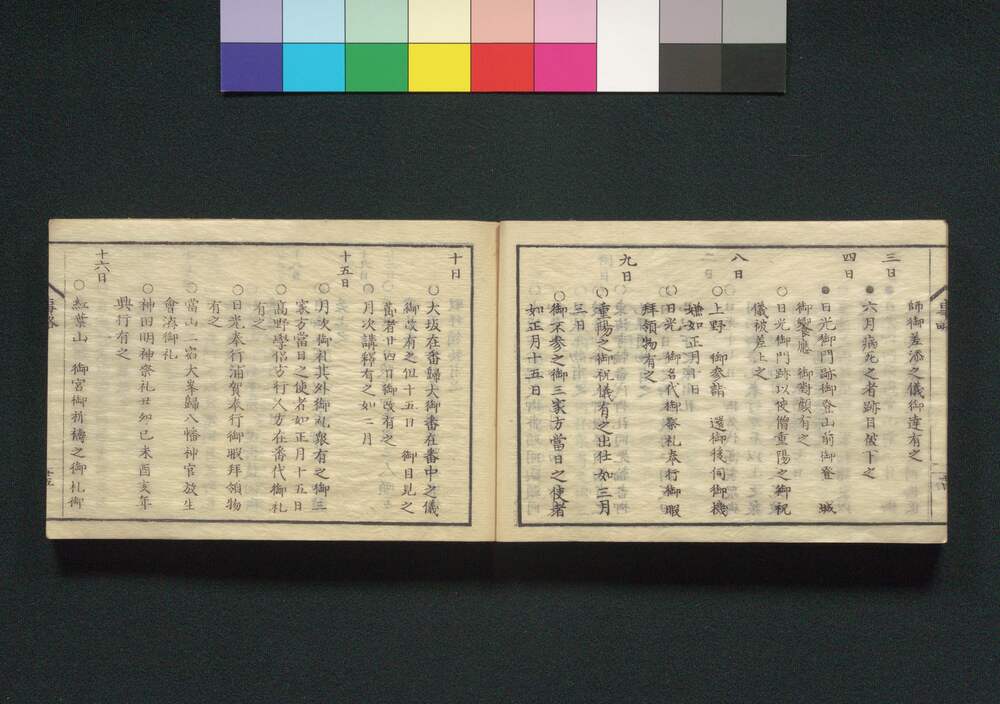 師御差添之儀御達有之
三日
●六月病死之者跡目被下之
四日
●日光御門跡御登山前御登　城
御饗應　御對顔有之
○日光御門跡以使僧重陽之御祝
儀被差上之
八日
○上野　御參詣　還御後伺御機
嫌如正月十日
○日光　御名代御祭礼奉行御暇
拜領物有之
九日
○重陽之御祝儀有之出仕如三月
三日
○御不參之御三家方當日之使者
如正月十五日
十日
○大坂在番歸大御番在番中之儀
御改有之但十五日　御目見之
萬者廿四日御改有之
○月次講釋有之如二月
十五日
○月次御礼其外御礼衆有之御三
家方當日之使者如正月十五日
○高野學侶方行人方在番代御礼
有之
○日光奉行浦賀奉行御暇拜領物
有之
○當山一宿大峯歸八幡神官放生
會濟御礼
○神田明神祭礼丑卯巳未酉亥年
興行有之
十六日
○紅葉山　御宮御祈禱之御札御